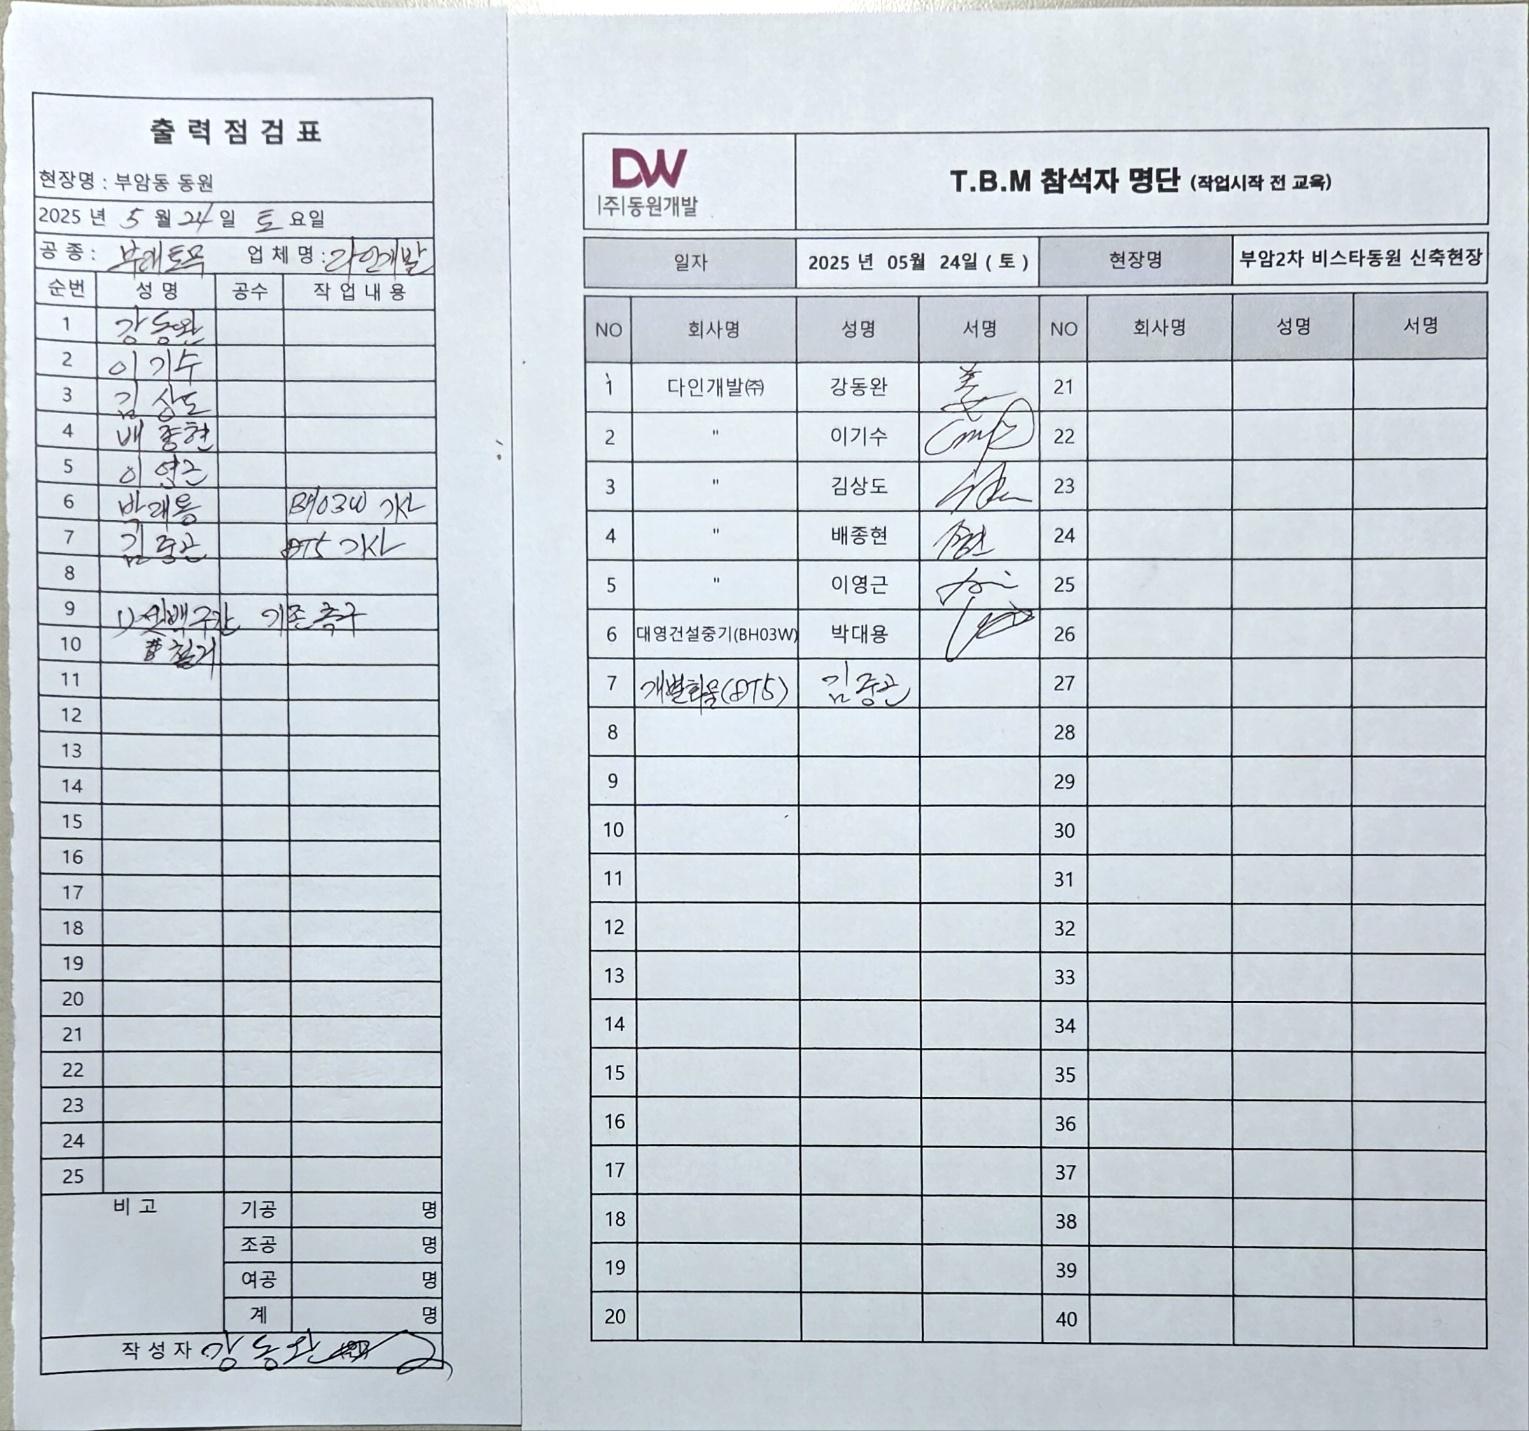 출력점검표
현장명 : 부암동 동원
2025 년 5 월 24 일 토 요일
공 종 : 부대토목 업 체 명 : 다인개발
순번 성 명 공수 작 업 내 용
1 강동완
2 이기수
3 김상도
4 배종현
5 이영근
6 박대용 BH03W 기사
7 김중곤 DT5 기사
8
9 1) 기존 측구
10 철거
11
12
13
14
15
16
17
18
19
20
21
22
23
24
25
비 고
기공 명
조공 명
여공 명
계 명
작 성 자 강동완
DW
(주)동원개발
T.B.M 참석자 명단 (작업시작 전 교육)
일자 2025 년 05월 24일 ( 토 ) 현장명 부암2차 비스타동원 신축현장
NO 회사명 성명 서명 NO 회사명 성명 서명
1 다인개발㈜ 강동완 21
2 " 이기수 22
3 " 김상도 23
4 " 배종현 24
5 " 이영근 25
6 대영건설중기(BH03W) 박대용 26
7 개별화물(DT5) 김중곤 27
8 28
9 29
10 30
11 31
12 32
13 33
14 34
15 35
16 36
17 37
18 38
19 39
20 40